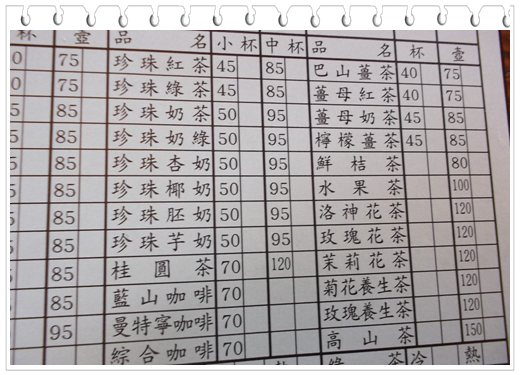 杯 壺 品 名 小杯 中杯 品 名 杯 壺
0 75 珍珠紅茶 45 85 巴山薑茶 40 75
0 75 珍珠綠茶 45 85 薑母紅茶 40 75
5 85 珍珠奶茶 50 95 薑母奶茶 45 85
5 85 珍珠奶綠 50 95 檸檬薑茶 45 85
5 85 珍珠杏奶 50 95 鮮桔茶 80
5 85 珍珠椰奶 50 95 水果茶 100
5 85 珍珠胚奶 50 95 洛神花茶 120
5 85 珍珠芋奶 50 95 玫瑰花茶 120
5 85 桂圓茶 70 120 茉莉花茶 120
5 85 藍山咖啡 70 菊花養生茶 120
5 95 曼特寧咖啡 70 玫瑰養生茶 120
綜合咖啡 70 高山茶 150
茶 冷 熱